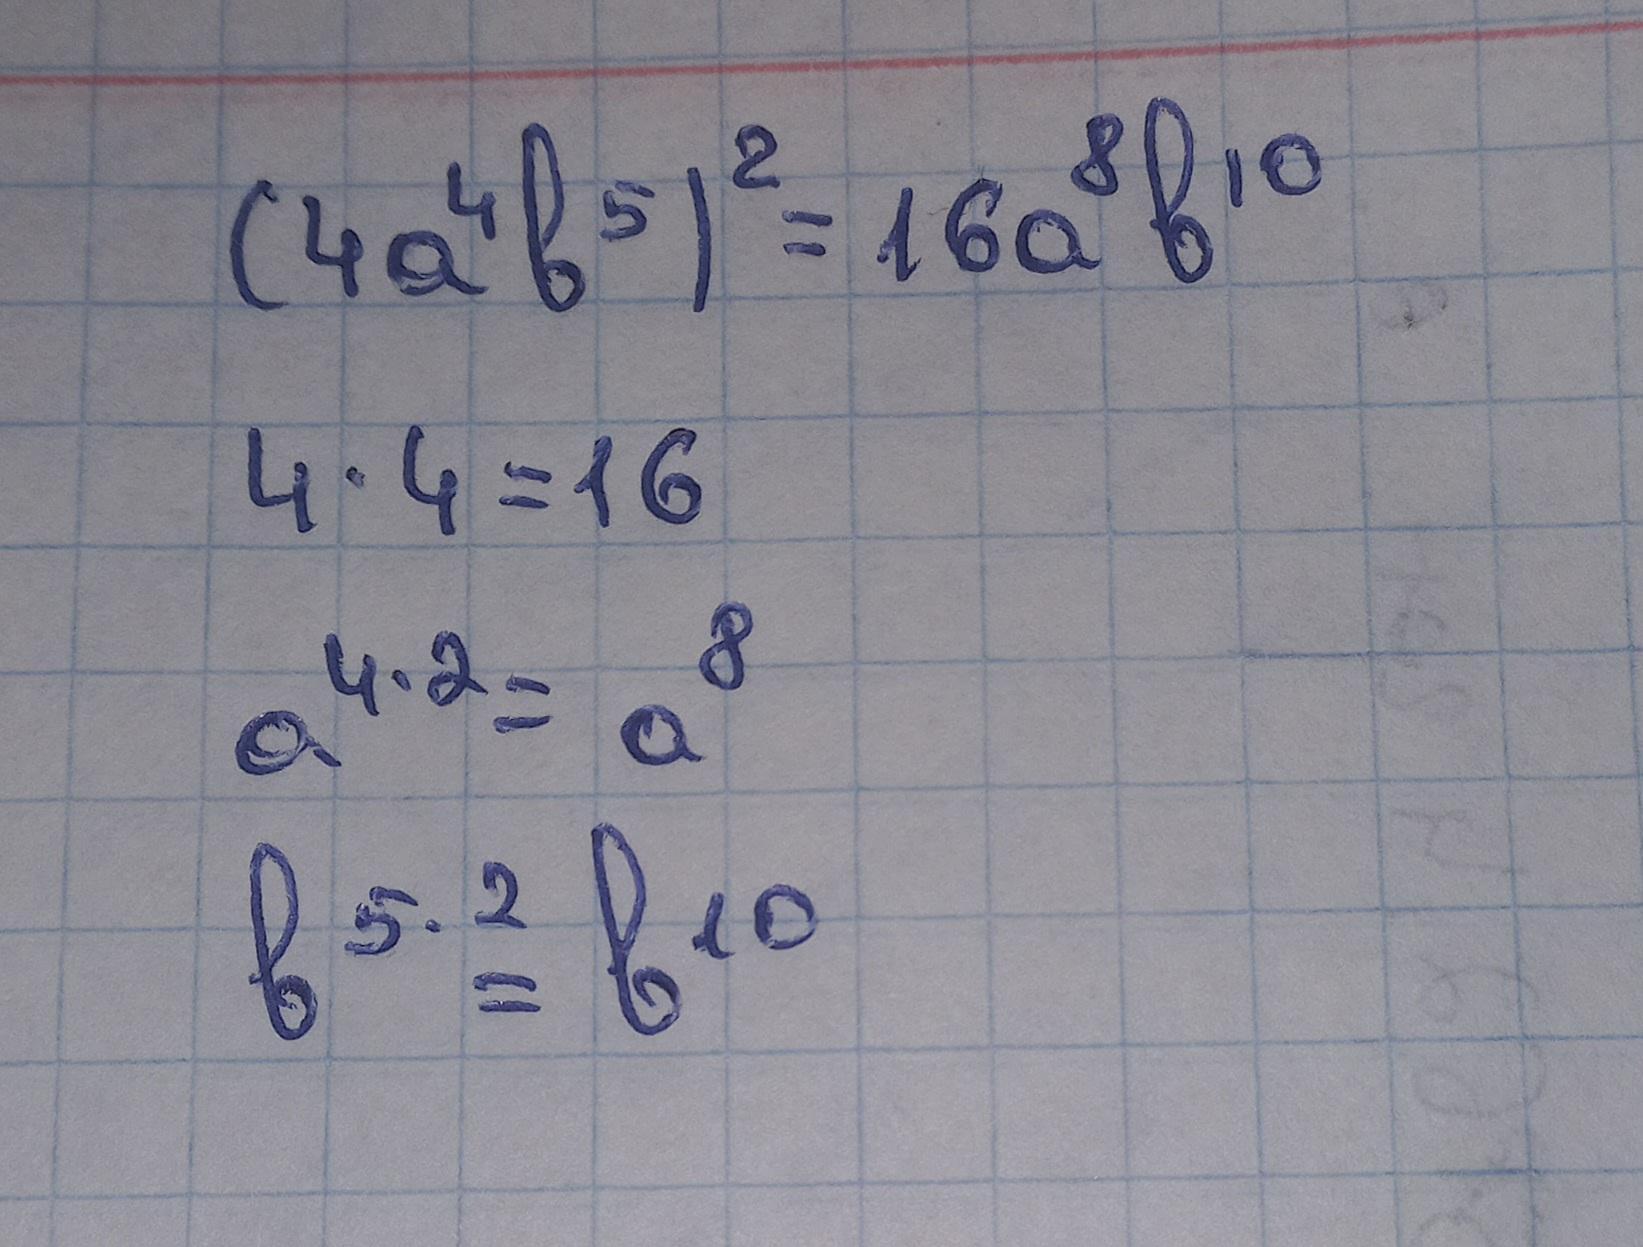 (4a⁴b⁵)² = 16a⁸b¹⁰
4 · 4 = 16
a⁴·² = a⁸
b⁵·² = b¹⁰